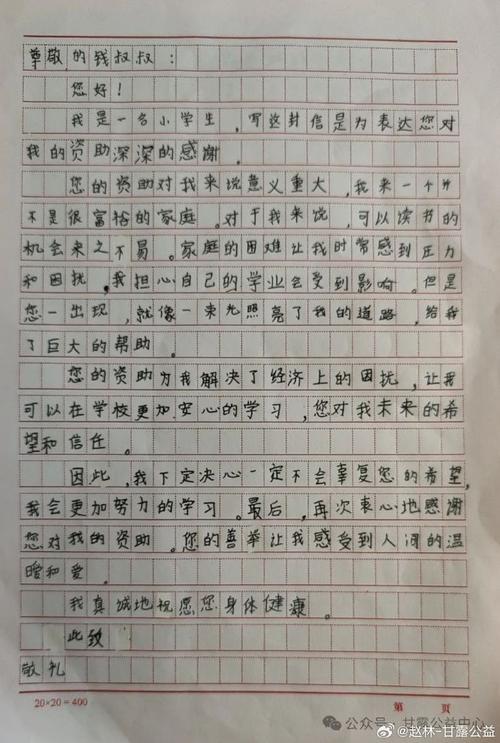 尊敬的钱叔叔：
您好！
我是一名小学生，写这封信是为表达您对
我的资助深深的感谢。
您的资助对我来说意义重大，我来一个并
不是很富裕的家庭。对于我来说，可以读书的
机会来之不易。家庭的困难让我时常感到压力
和困扰，我担心自己的学业会受到影响。但是
您一出现，就像一束光照亮了我的道路，给我
了巨大的帮助。
您的资助为我解决了经济上的困扰，让我
可以在学校更加安心的学习，您对我未来的希
望和信任。
因此，我下定决心一定不会辜复您的希望，
我会更加努力的学习。最后，再次衷心地感谢
您对我的资助。您的善举让我感受到人间的温
暖和爱。
我真诚地祝愿您身体健康。
此致
敬礼
20×20=400
第 页
公众号·甘露公益中心
@赵林-甘露公益